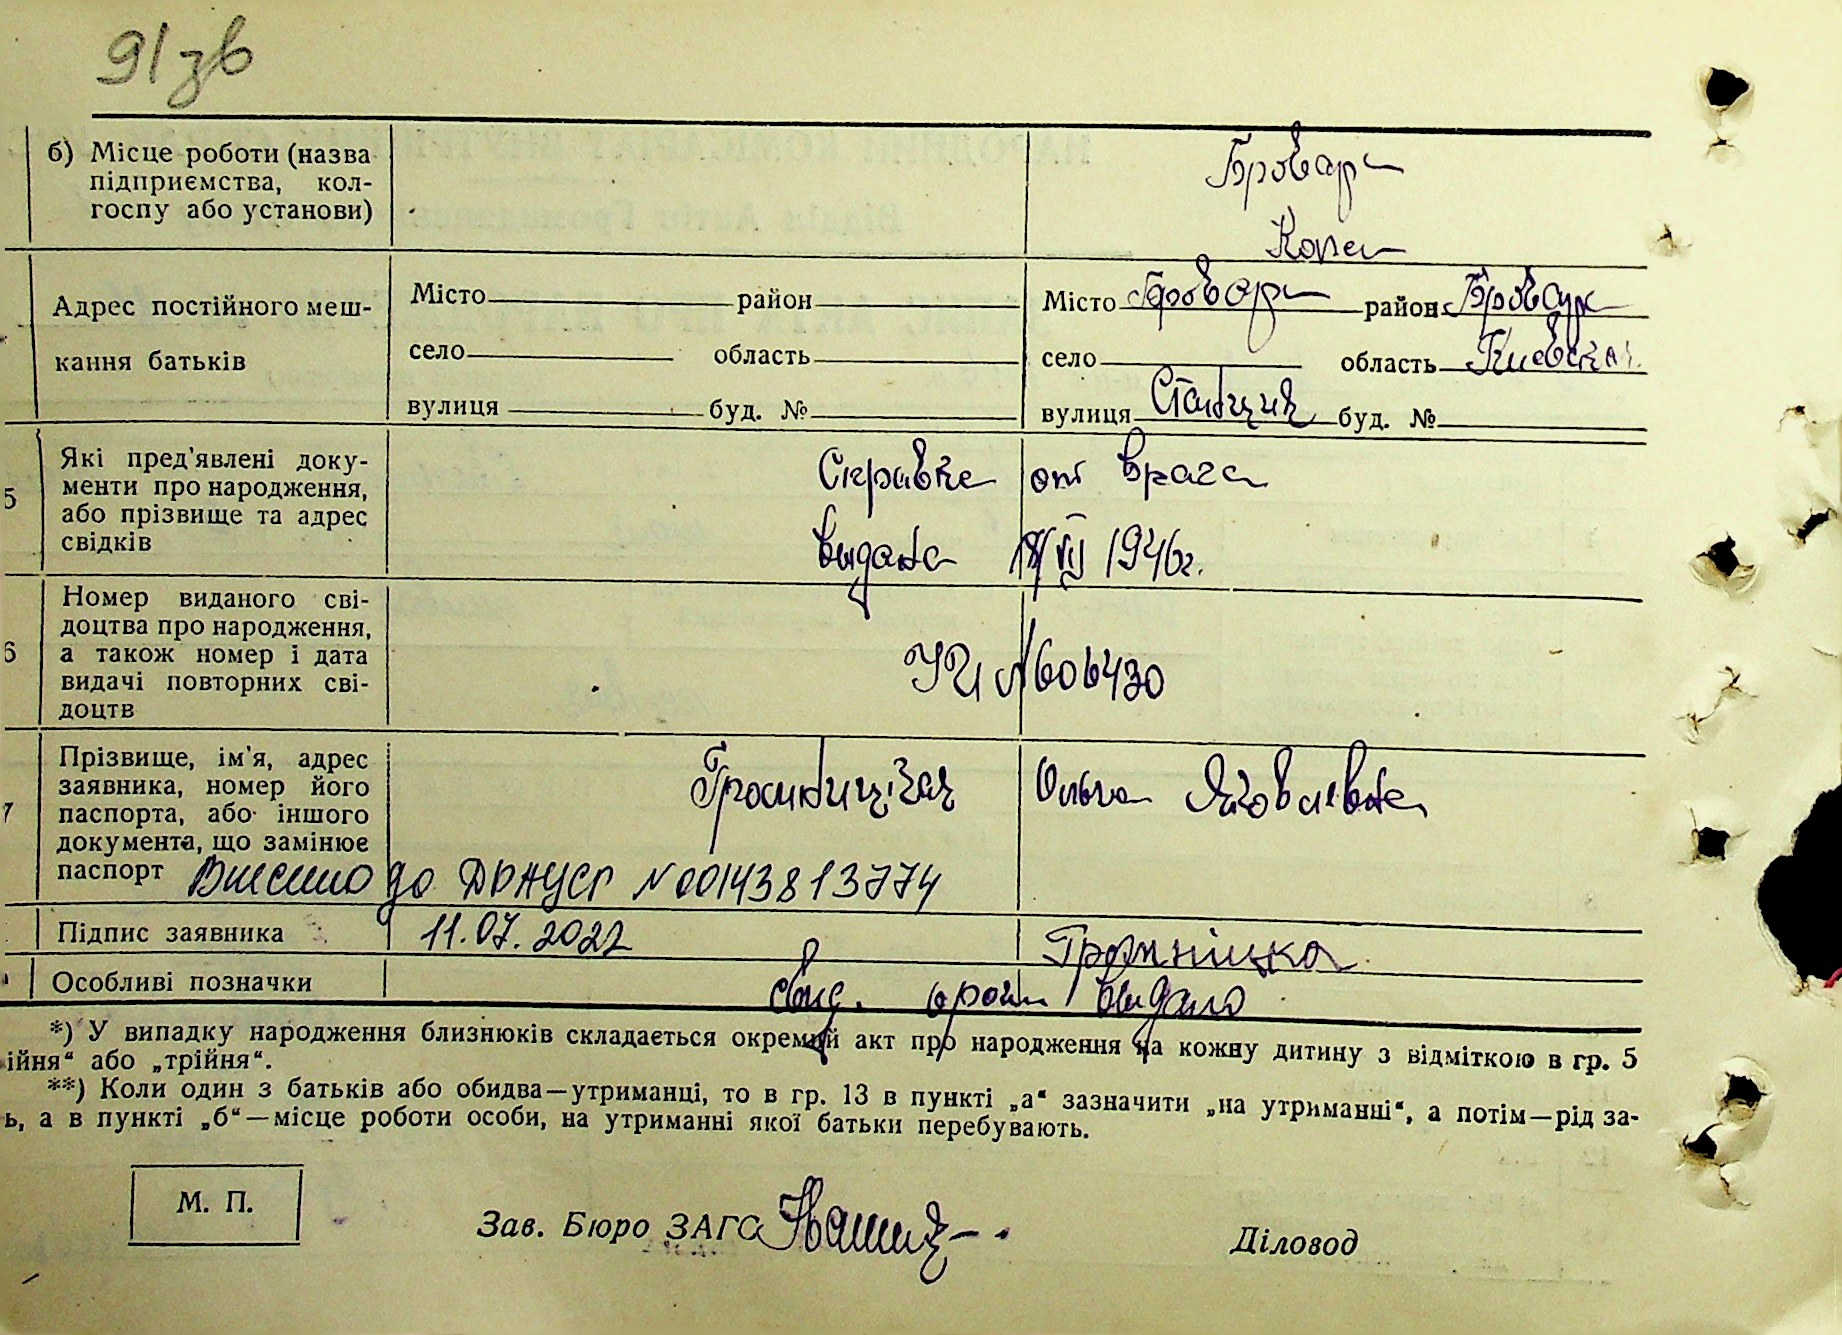 91зв
б) Місце роботи (назва
підприємства, кол-
госпу або установи)
Бровар
Адрес постійного меш-
кання батьків
Місто район
село область
вулиця буд. №
Місто Бровар район Бровар
село область Киевская
вулиця буд. №
5
Які пред'явлені доку-
менти про народження,
або прізвище та адрес
свідків
Справка от врача
выдана 18/VII 1946г.
6
Номер виданого сві-
доцтва про народження,
а також номер і дата
видачі повторних сві-
доцтв
№606430
7
Прізвище, ім'я, адрес
заявника, номер його
паспорта, або іншого
документа, що замінює
паспорт
Ольга Яковлевна
Внесено до ДРАЦСГ №00143813774
Підпис заявника
11.07.2022
Особливі позначки
свид. выдано
*) У випадку народження близнюків складається окремий акт про народження на кожну дитину з відміткою в гр. 5
ійня“ або „трійня“.
**) Коли один з батьків або обидва—утриманці, то в гр. 13 в пункті „а“ зазначити „на утриманні“, а потім—рід за-
ь, а в пункті „б“—місце роботи особи, на утриманні якої батьки перебувають.
М. П.
Зав. Бюро ЗАГС
Діловод